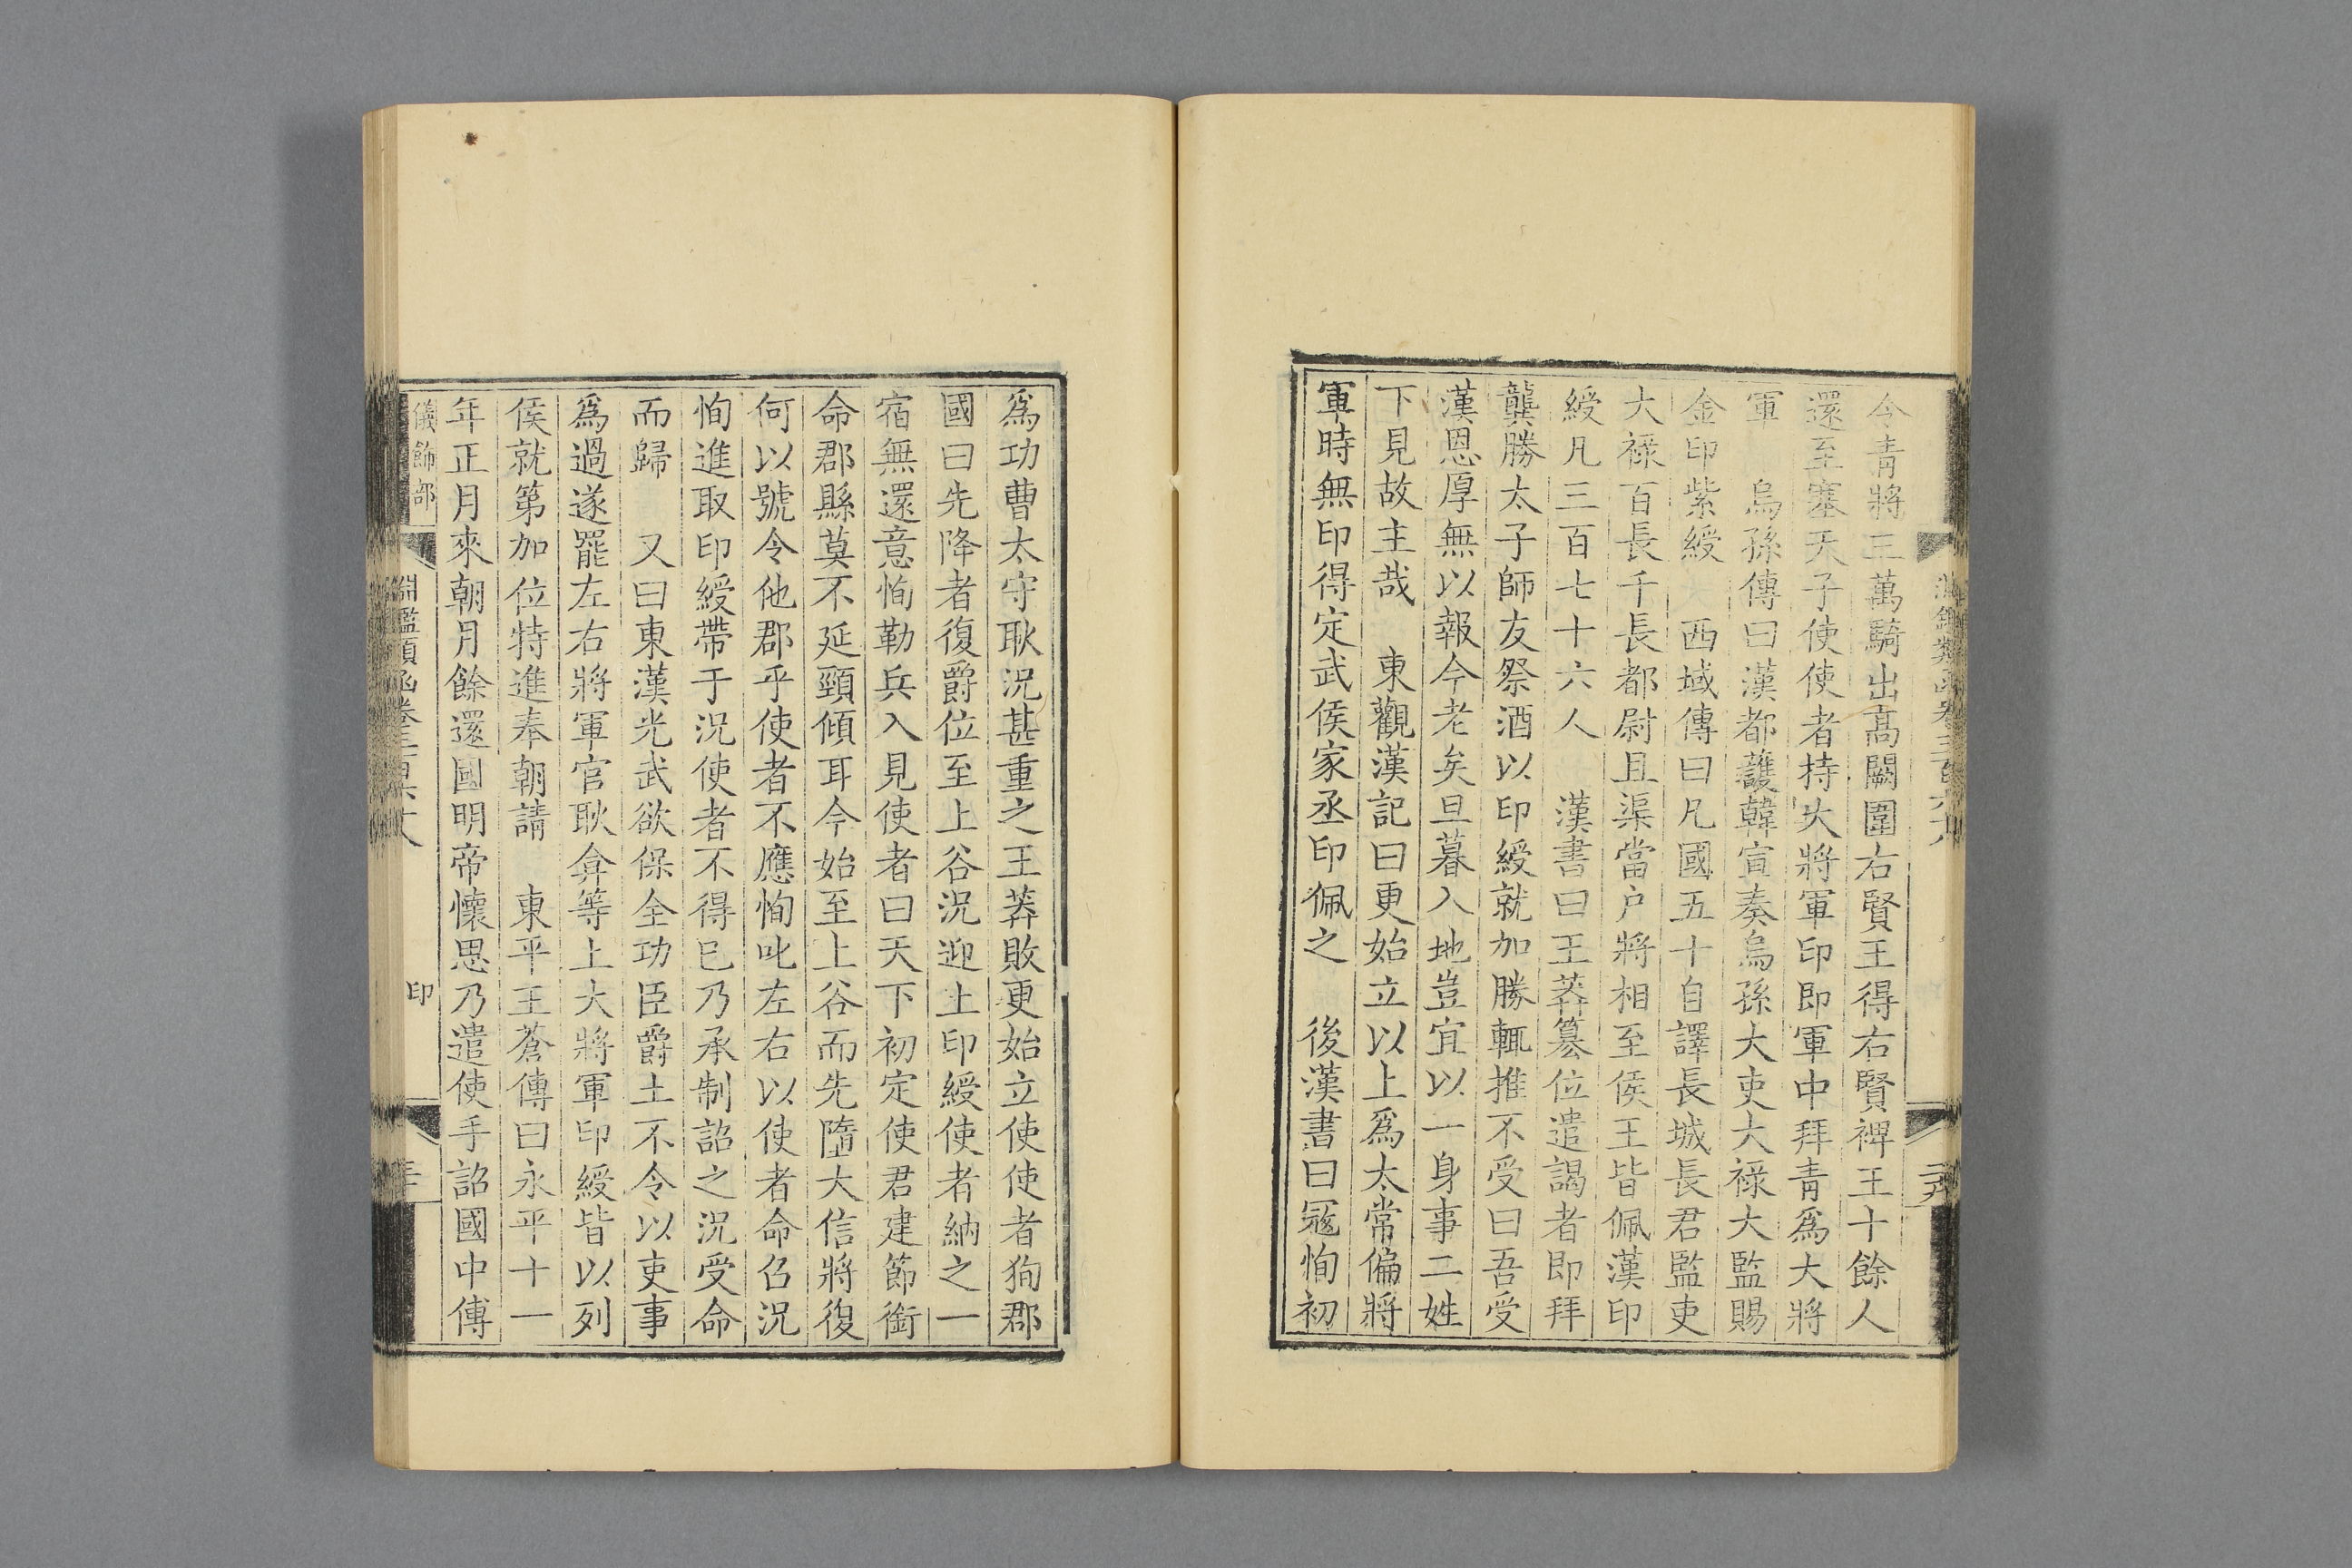 令青將三萬騎出高闕圍右賢王得右賢裨王十餘人
還至塞天子使使者持大將軍印即軍中拜青爲大將
軍　烏孫傳曰漢都護韓宣奏烏孫大吏大祿大監賜
金印紫綬　西域傳曰凡國五十自譯長城長君監吏
大祿百長千長都尉且渠當户將相至侯王皆佩漢印
綬凡三百七十六人　漢書曰王莽簒位遣謁者即拜
龔勝太子師友祭酒以印綬就加勝輒推不受曰吾受
漢恩厚無以報今老矣旦暮入地豈宜以一身事二姓
下見故主哉　東觀漢記曰更始立以上爲太常偏將
軍時無印得定武侯家丞印佩之　後漢書曰冦恂初
爲功曹太守耿況甚重之王莽敗更始立使使者狥郡
國曰先降者復爵位至上谷況迎上印綬使者納之一
宿無還意恂勒兵入見使者曰天下初定使君建節銜
命郡縣莫不延頸傾耳今始至上谷而先墮大信將復
何以號令他郡乎使者不應恂叱左右以使者命召況
恂進取印綬帶于況使者不得已乃承制詔之況受命
而歸　又曰東漢光武欲保全功臣爵土不令以吏事
爲過遂罷左右將軍官耿弇等上大將軍印綬皆以列
侯就第加位特進奉朝請　東平王蒼傳曰永平十一
年正月來朝月餘還國明帝懷思乃遣使手詔國中傅
儀飾部
淵鑑類函卷三百六十八　印